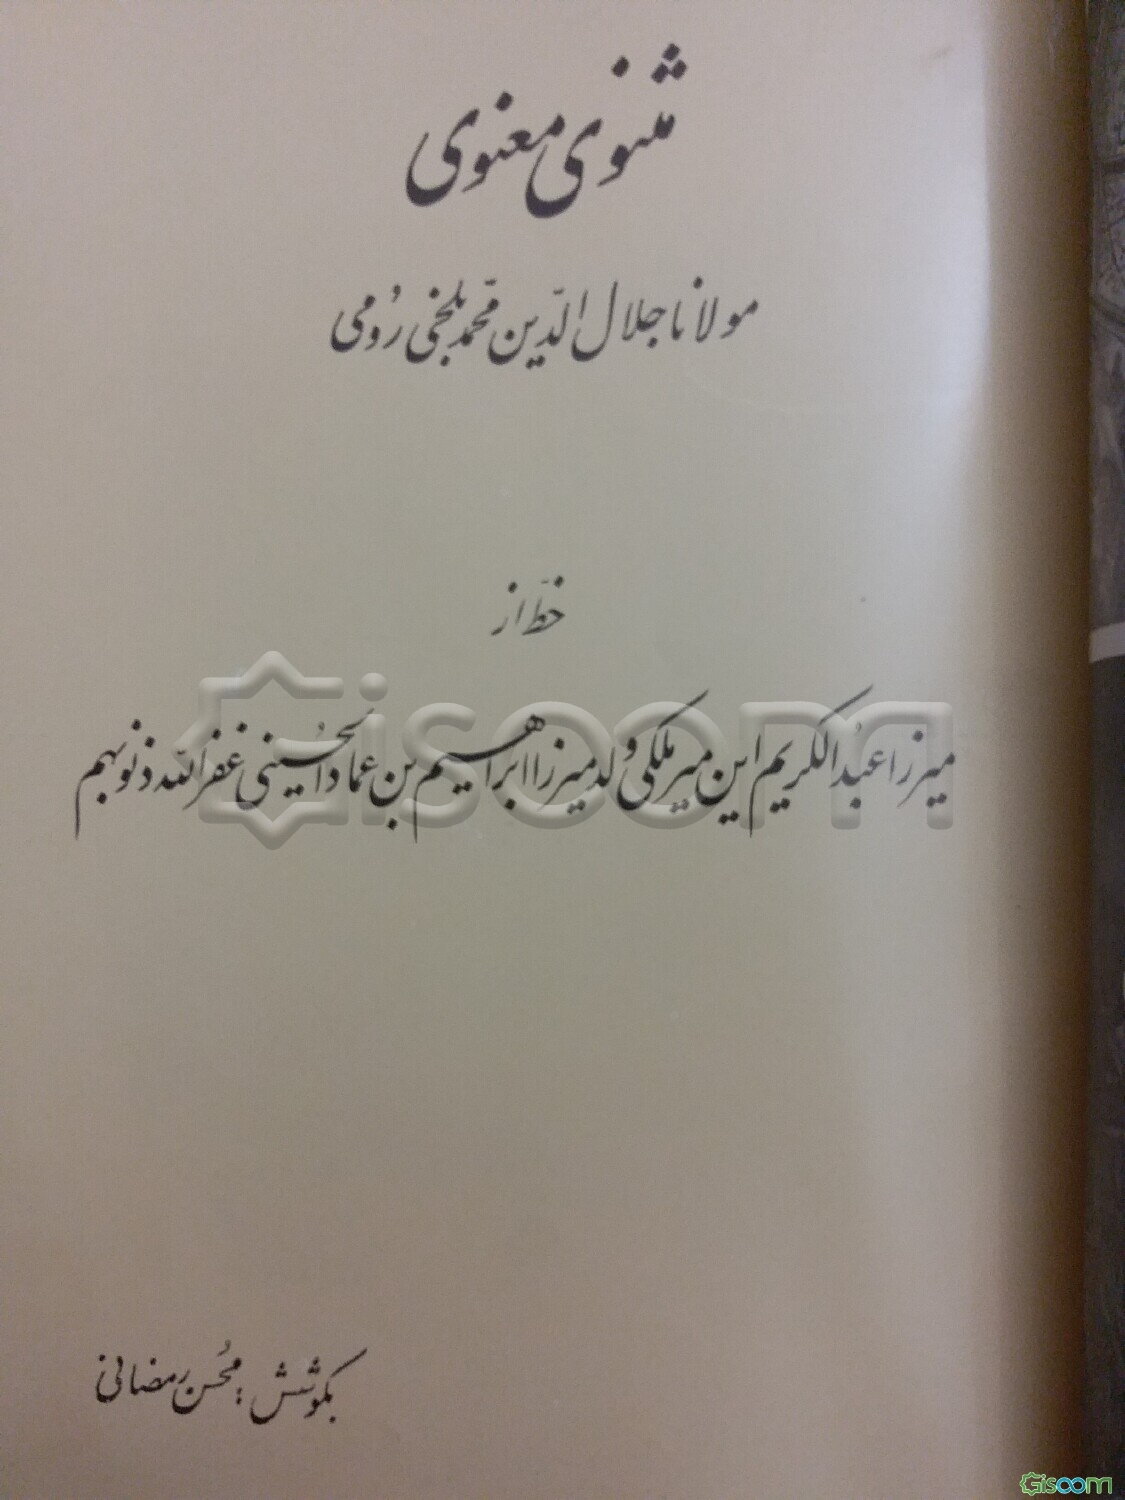 مثنوی معنوی
مولانا جلال الدّین محمّد بلخی رُومی
خطّ از
میرزا عبدُالکریم این میر ملکی ولد میرزا ابراهیم بن عمادالحُسینی غفرالله ذنوبهم
بکوشش : محُسن رمضانی
Gisoom
Gisoom